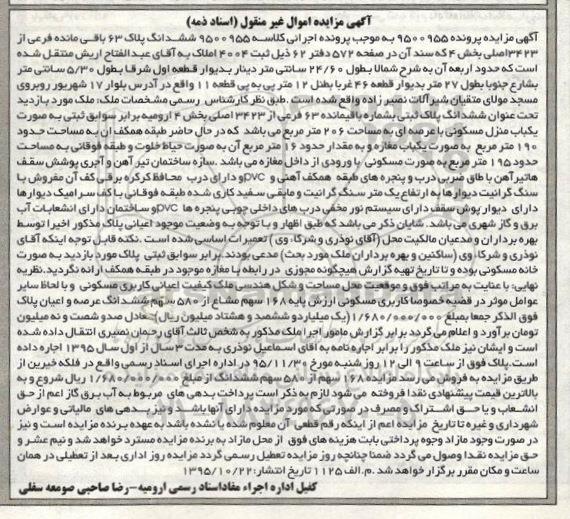 آگهی مزایده اموال غیر منقول (اسناد ذمه)
آگهی مزایده پرونده ۹۵۰۰۹۵۵ به موجب پرونده اجرائی کلاسه ۹۵۰۰۹۵۵ ششدانگ پلاک ۶۳ باقی مانده فرعی از
۳۴۲۳ اصلی بخش ۴ که سند آن در صفحه ۵۷۲ دفتر ۶۲ ذیل ثبت ۴۰۰۴ املاک به آقای عبدالفتاح اریش منتقل شده
است که حدود اربعه آن به شرح شمالا بطول ۲۴/۶۰ سانتی متر دیوار بدیوار قطعه اول شرقا بطول ۵/۳۰ سانتی متر
بشارع جنوبا بطول ۲۷ متر بدیوار قطعه ۴۶ غربا بطول ۱۲ متر پی به پی قطعه ۱۱ واقع در آدرس بلوار ۱۷ شهریور روبروی
مسجد مولای متقیان شیرآلات نصیر زاده واقع شده است. طبق نظر کارشناس رسمی مشخصات ملک: ملک مورد بازدید
تحت عنوان ششدانگ پلاک ثبتی بشماره باقیمانده ۶۳ فرعی از ۳۴۲۳ اصلی بخش ۴ ارومیه برابر سوابق ثبتی به صورت
یکباب منزل مسکونی با عرصه ای به مساحت ۲۰۶ متر مربع می باشد که در حال حاضر طبقه همکف آن به مساحت حدود
۱۹۰ متر مربع به صورت یکباب مغازه و به مقدار حدود ۱۶ متر مربع آن به صورت حیاط خلوت و طبقه فوقانی به مساحت
حدود ۱۹۵ متر مربع به صورت مسکونی با ورودی از داخل مغازه می باشد. سازه ساختمان تیر آهن و آجری پوشش سقف
ها تیرآهن با طاق ضربی درب و پنجره های طبقه همکف آهنی و pvc و دارای درب محافظ کرکره برقی کف آن مفروش با
سنگ گرانیت دیوارها به ارتفاع یک متر سنگ گرانیت و مابقی سفید کاری شده طبقه فوقانی با کف سرامیک دیوارها
دارای دیوار پوش سقف دارای سیستم نور مخفی درب های داخلی چوبی پنجره ها pvc و ساختمان دارای انشعابات آب
برق و گاز شهری می باشد. شایان ذکر می باشد که طبق اظهار و با توجه به وضعیت موجود اعیانی پلاک مذکور اخیرا توسط
بهره برداران و مدعیان مالکیت محل (آقای نوذری و شرکاء وی) تعمیرات اساسی شده است. نکته قابل توجه اینکه آقای
نوذری و شرکاء وی (ساکنین و بهره برداران ملک مورد بحث) مدعی بودند برابر سوابق ثبتی پلاک مورد بازدید به صورت
خانه مسکونی بوده و تا تاریخ تهیه گزارش هیچگونه مجوزی در رابطه با مغازه موجود در طبقه همکف ارائه نکردید. نظریه
نهایی: با عنایت به مراتب فوق و موقعیت محل مساحت و شکل هندسی ملک کیفیت اعیانی کاربری مسکونی و با لحاظ سایر
عوامل موثر در قضیه خصوصا کاربری مسکونی ارزش پایه ۱۶۸ سهم مشاع از ۵۸۰ سهم ششدانگ عرصه و اعیان پلاک
فوق الذکر جمعا بمبلغ ۱/۶۸۰/۰۰۰/۰۰۰ (یک میلیارد و ششصد و هشتاد میلیون ریال) معادل صدو شصت و نه میلیون
تومان برآورد و اعلام می گردد برابر گزارش مامور اجرا ملک مذکور به شخص ثالث آقای رحمان نصیری انتقال داده شده
است و ایشان نیز ملک مذکور را برابر اجاره نامه به آقای اسماعیل نوذری به مدت ۳ سال از اول سال ۱۳۹۵ اجاره داده
است. پلاک فوق از ساعت ۹ الی ۱۲ روز شنبه مورخ ۹۵/۱۱/۳۰ در اداره اجرای اسناد رسمی واقع در فلکه خیرین از
طریق مزایده به فروش می رسد مزایده ۱۶۸ سهم از ۵۸۰ سهم ششدانگ از مبلغ ۱/۶۸۰/۰۰۰/۰۰۰ ریال شروع و به
بالاترین قیمت پیشنهادی نقدا فروخته می شود لازم به ذکر است پرداخت بدهی های مربوط به آب برق گاز اعم از حق
انشعاب و یا حق اشتراک و مصرف در صورتی که مورد مزایده دارای آنها باشد و نیز بدهی های مالیاتی و عوارض
شهرداری و غیره تا تاریخ مزایده اعم از اینکه رقم قطعی آن معلوم شده یا نشده باشد به عهده برنده مزایده است و نیز
در صورت وجود مازاد وجوه پرداختی بابت هزینه های فوق از محل مازاد به برنده مزایده مسترد خواهد شد و نیم عشر و
حق مزایده نقدا وصول می گردد ضمنا چنانچه روز مزایده تعطیل رسمی گردد مزایده روز اداری بعد از تعطیلی در همان
ساعت و مکان مقرر برگزار خواهد شد. م.الف ۱۱۲۵ تاریخ انتشار: ۱۳۹۵/۱۰/۲۲
کفیل اداره اجراء مفاد اسناد رسمی ارومیه - رضا صاحبی صومعه سفلی